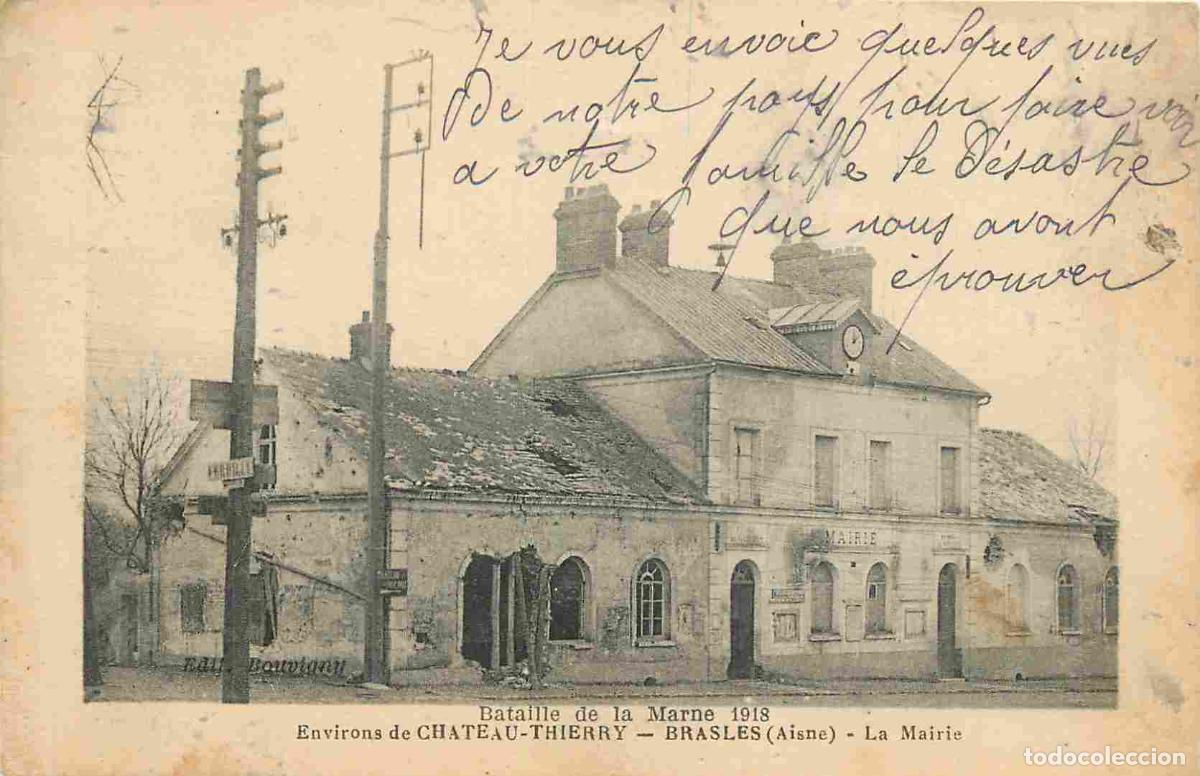 Je vous envoie quelques vues
De notre pays pour faire voir
a votre famille le Désastre
que nous avont
éprouver
MAIRIE
Edit. Bouvigny
Bataille de la Marne 1918
Environs de CHATEAU-THIERRY — BRASLES (Aisne) - La Mairie
todocoleccion